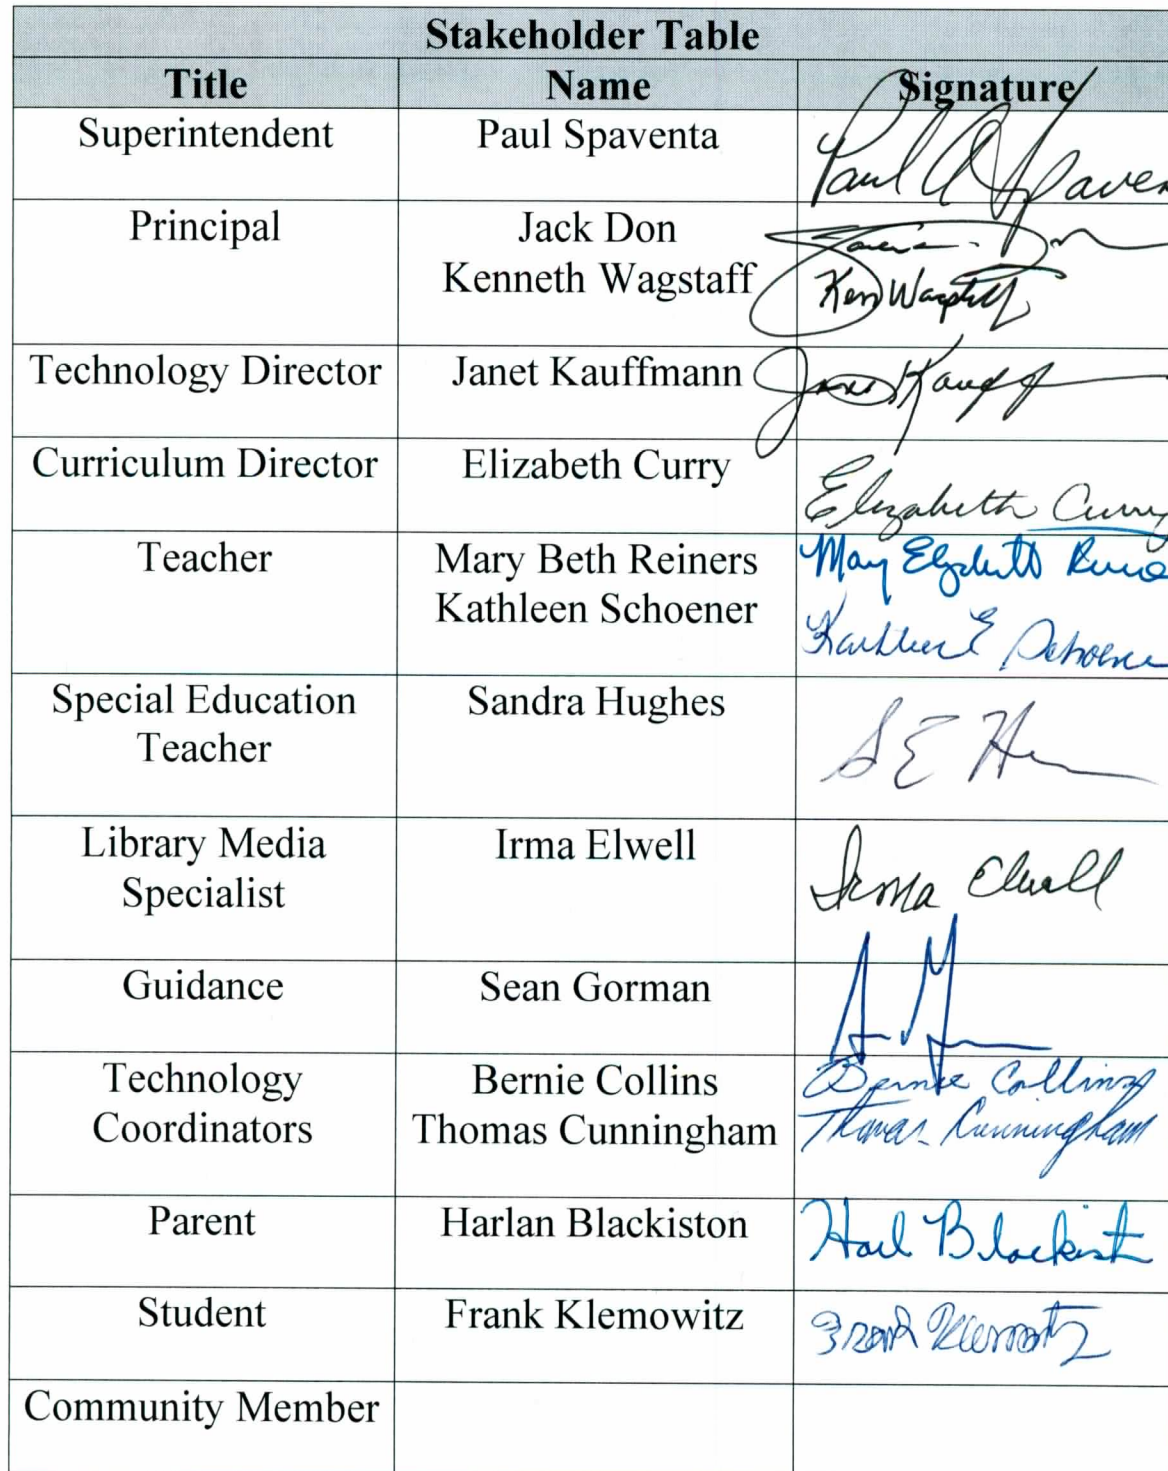 Stakeholder Table
Title Name Signature
Superintendent Paul Spaventa Paul A Spaven
Principal Jack Don
Kenneth Wagstaff Ken Wagstaff
Technology Director Janet Kauffmann
Curriculum Director Elizabeth Curry Elizabeth Curry
Teacher Mary Beth Reiners Mary Elizabeth
Kathleen Schoener Kathleen E Schoene
Special Education Sandra Hughes S E H
Teacher
Library Media Irma Elwell Irma Elwell
Specialist
Guidance Sean Gorman
Technology Bernie Collins Bernie Collins
Coordinators Thomas Cunningham Thomas Cunningham
Parent Harlan Blackiston Harl Blackist
Student Frank Klemowitz Frank Klemowitz
Community Member